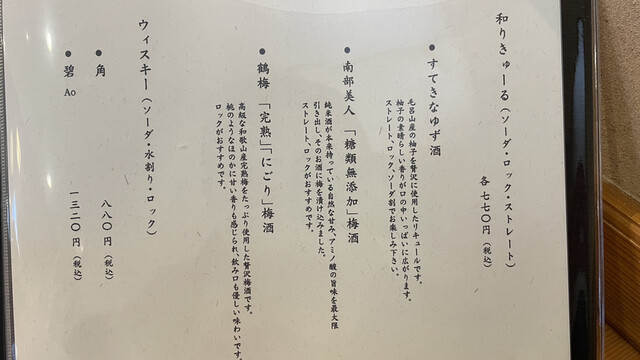 和りきゅーる（ソーダ・ロック・ストレート）
各七七〇円（税込）
● すてきなゆず酒
毛呂山産の柚子を贅沢に使用したリキュールです。
柚子の素晴らしい香りが口の中いっぱいに広がります。
ストレート、ロック、ソーダ割でお楽しみ下さい。
● 南部美人 「糖類無添加」梅酒
純米酒が本来持っている自然な甘み、アミノ酸の旨味を最大限
引き出し、そのお酒に梅を漬け込みました。
ストレート、ロックがおすすめです。
● 鶴梅 「完熟」「にごり」梅酒
高級な和歌山産完熟梅をたっぷり使用した贅沢梅酒です。
桃のようなほのかに甘い香りも感じられ飲み口も優しい味わいです。
ロックがおすすめです。
ウィスキー（ソーダ・水割り・ロック）
● 角 八八〇円（税込）
● 碧 Ao 一三二〇円（税込）